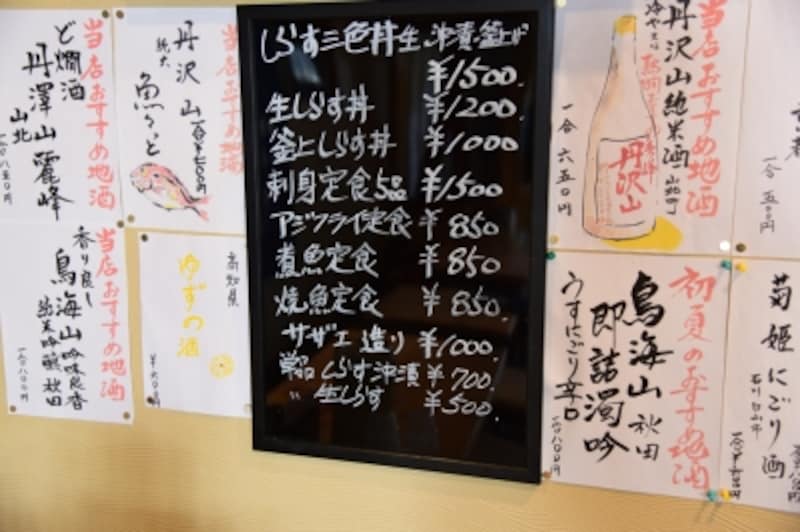 しらす三色丼 生、沖漬、釜上げ
¥1500.
生しらす丼 ¥1200.
釜上しらす丼 ¥1000
刺身定食5品 ¥1500
アジフライ定食 ¥850
煮魚定食 ¥850
焼魚定食 ¥850
サザエ造り ¥1000.
単品 しらす沖漬 ¥700.
〃 生しらす ¥500.
当店おすすめ地酒
ど燗酒
丹澤山 麗峰
山北
一合八五〇円
当店おすすめ地酒
丹沢山
純大
魚々と
当店おすすめ地酒
香り良し
鳥海山 吟味良香
純米吟醸 秋田
高知県
ゆずの酒
当店おすすめ地酒
丹沢山純米酒 山北町
冷やでも
一合 六五〇円
丹沢山
初夏のおすすめ地酒
鳥海山 秋田
即詰濁吟
うすにごり辛口
一合八〇〇円
一合 五〇〇円
菊姫 にごり酒
石川 白山市